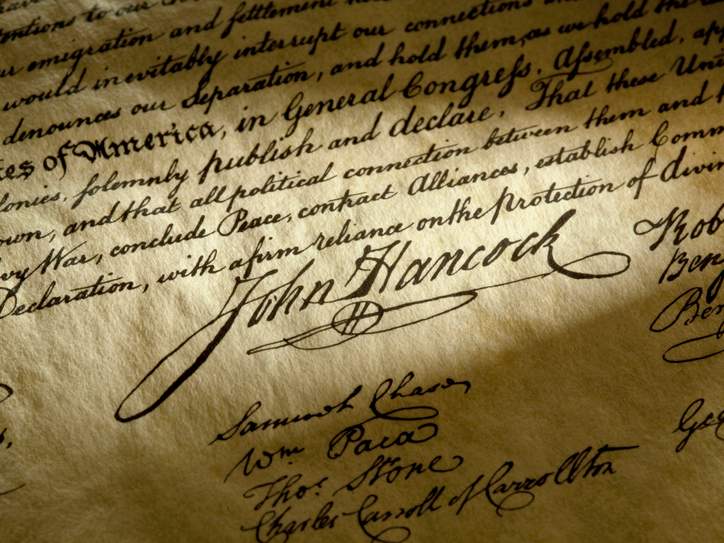 our emigration and settlement
would inevitably interrupt our connections
denounces our Separation, and hold them, as we hold the
of America, in General Congress, Assembled,
solemnly publish and declare, That these
and that all political connection between them and
War, conclude Peace, contract Alliances, establish
Declaration, with a firm reliance on the Protection of
John Hancock
Samuel Chase
Wm. Paca
Thos. Stone
Charles Carroll of Carrollton